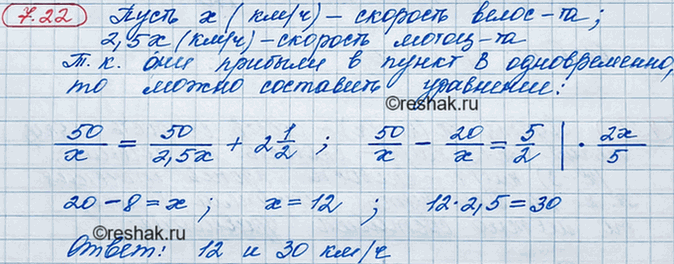 7.22 Пусть х (км/ч) – скорость велос-та;
2,5х (км/ч) – скорость мотоц-та
Т.к. они прибыли в пункт В одновременно,
то можно составить уравнение:
©reshak.ru
50/x = 50/2,5x + 2 1/2 ; 50/x - 20/x = 5/2 | · 2x/5
20 - 8 = x ; x = 12 ; 12·2,5 = 30
Ответ: 12 и 30 км/ч
©reshak.ru